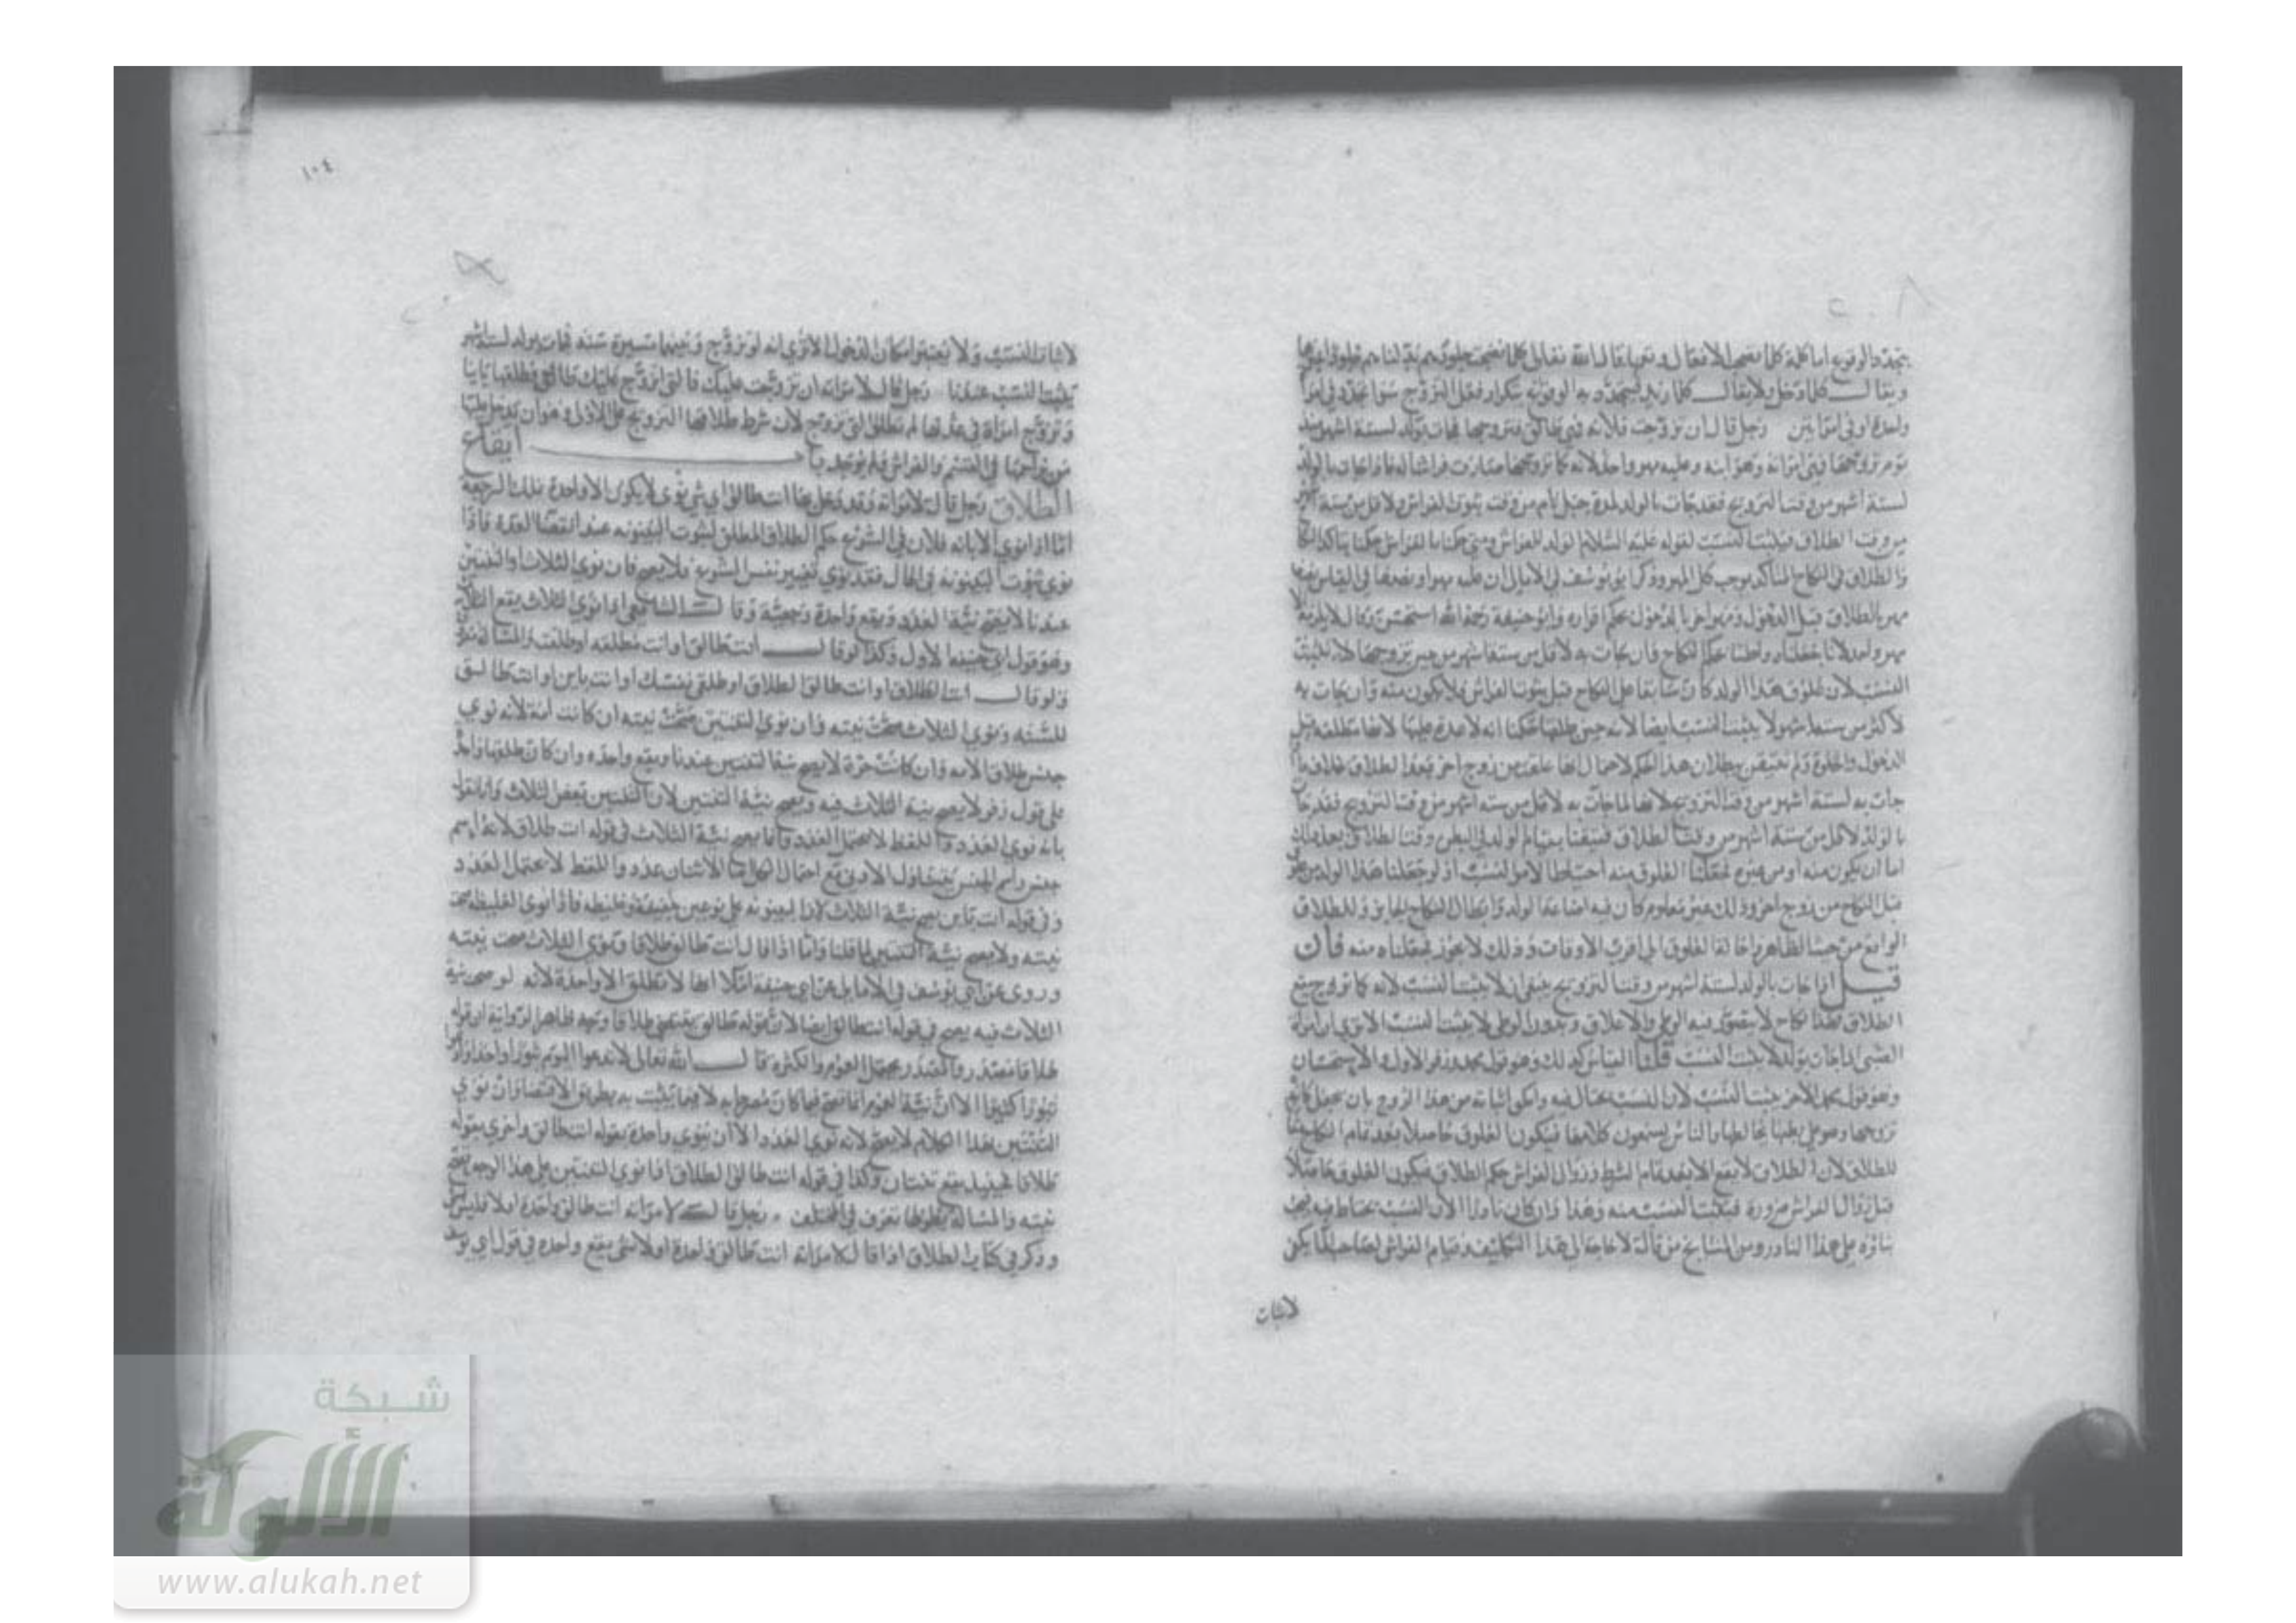 يتجدد الوقوع اما كلمة كلما تصحب الافعال وتعمها قال الله تعالى كلما نضجت جلودهم بدلناهم جلودا غيرها
ويقال كلما دخل ولا يقال كلما زيد فيتجدد به الوقوع بتكرار فعل التزوج سوا تجدد في امراة
واحدة او في امراتين رجل قال ان تزوجت فلانة فهي طالق فتزوجها فجات بولد لستة اشهر منذ
يوم تزوجها فهي امراته وهو ابنه وعليه مهر واحد لانه كما تزوجها صارت فراشا له فاذا جات بالولد
لستة اشهر من وقت التزويج فقد جات بالولد لمدة حبل تام من وقت ثبوت الفراش ولاقل من ستة اشهر
من وقت الطلاق فيثبت النسب لقوله عليه السلام الولد للفراش ومتى حكمنا بالفراش حكمنا بتاكد النكاح
والطلاق في النكاح المتاكد يوجب كل المهر وذكر ابو يوسف في الامالي ان عليه مهرا ونصفا في القياس نصف
مهر بالطلاق قبل الدخول ومهر اخر بالدخول بحكم اقراره وابو حنيفة رحمه الله استحسن وقال لا يلزمه الا
مهر واحد لانا جعلناه واطئا بحكم النكاح فان جات به لاقل من ستة اشهر من حين تزوجها لا يثبت
النسب لان علوق هذا الولد كان سابقا على النكاح قبل ثبوت الفراش فلا يكون منه وان جات به
لاكثر من ستة اشهر لا يثبت النسب ايضا لانه حين طلقها حكمنا انه لا عدة عليها لانها مطلقة قبل
الدخول والخلوة ولم نتيقن ببطلان هذا الحكم لاحتمال انها علقت من زوج اخر بعد الطلاق بخلاف ما اذا
جات به لستة اشهر من وقت التزويج لانها لما جات به لاقل من ستة اشهر من وقت التزويج فقد جات
بالولد لاقل من ستة اشهر من وقت الطلاق فتيقنا بقيام الولد في البطن وقت الطلاق بعد ذلك
اما ان يكون منه او من غيره فجعلنا العلوق منه احتياطا لامر النسب اذ لو جعلنا هذا الولد من علوق
قبل النكاح من زوج اخر وذلك غير معلوم كان فيه اضاعة الولد وابطال النكاح الجائز وللطلاق
الواقع من حيث الظاهر واحالة العلوق الى اقرب الاوقات وذلك لا يجوز فجعلناه منه فان
قيل اذا جات بالولد لستة اشهر من وقت التزويج ينبغي ان لا يثبت النسب لانه كما تزوج يقع
الطلاق فهذا نكاح لا يتصور فيه الوطى والاعلاق وبدون الوطى لا يثبت النسب الا ترى ان امراة
الصبي اذا جات بولد لا يثبت النسب قلنا القياس كذلك وهو قول محمد وزفر الاول والاستحسان
وهو قول محمد الاخر يثبت النسب لان النسب يحتال فيه وامكن اثباته من هذا الزوج بان يجعل كانه
تزوجها وهو على بطنها يخالطها والناس يسمعون كلامهما فيكون العلوق حاصلا بعد تمام النكاح مقارنا
للطلاق لان الطلاق لا يقع الا بعد تمام الشرط وزوال الفراش حكم الطلاق فيكون العلوق حاصلا
قبل زوال الفراش ضرورة فيثبت النسب منه وهذا وان كان نادرا الا ان النسب يحتاط فيه فيجب
بناؤه على هذا النادر ومن المشايخ من قال لا حاجة الى هذا التكليف وقيام الفراش لصاحبه يكفي
لاثبات
١٠٤
لاثبات النسب ولا يعتبر امكان الدخول الا ترى انه لو تزوج وبينهما مسيرة سنة فجات بولد لستة اشهر
يثبت النسب عندنا رجل قال لامراته ان تزوجت عليك فالتي اتزوج عليك طالق فطلقها بائنا
وتزوج امراة في عدتها لم تطلق التي تزوج لان شرط طلاقها التزويج على الاولى وهو ان يدخل عليها
من يزاحمها في القسم والفراش ولم يوجد باب ايقاع
الطلاق رجل قال لامراته وقد دخل بها انت طالق اي شي نوى لا يكون الا واحدة تملك الرجعة
اما اذا نوى الابانة فلان في الشرع حكم الطلاق المطلق ثبوت البينونة عند انقضا العدة فاذا
نوى ثبوت البينونة في الحال فقد نوى تغيير نفس المشروع فلا يصح فان نوى الثلاث او الثنتين
عندنا لا تصح نية العدد ويقع واحدة رجعية وقال الشافعي اذا نوى الثلاث يقع الثلاث
وهو قول ابي حنيفة الاول وكذا لو قال انت طالق او انت مطلقة او طلقتك
ولو قال انت الطلاق او انت طالق الطلاق او طلقي نفسك او انت باين او انت طالق
للسنة ونوى الثلاث صحت نيته وان نوى الثنتين صحت نيته ان كانت امة لانه نوى
جنس طلاق الامة وان كانت حرة لا يصح نية الثنتين عندنا ويقع واحدة وان كان طلقها واحدة
على قول زفر لا يصح نية الثلاث فيه ويصح نية الثنتين لان الثنتين بعض الثلاث وانا نقول
بانه نوى العدد واللفظ لا يحتمل العدد وانما يصح نية الثلاث في قوله انت طلاق لانه اسم
جنس واسم الجنس يتناول الادنى مع احتمال الكل اما الاثنان عدد واللفظ لا يحتمل العدد
وفي قوله انت باين يصح نية الثلاث لان البينونة على نوعين خفيفة وغليظة فاذا نوى الغليظة صحت
نيته ولا يصح نية الثنتين لما قلنا واما اذا قال انت طالق طلاقا ونوى الثلاث صحت نيته
وروى عن ابي يوسف في الامالي عن ابي حنيفة انها لا تطلق الا واحدة لانه لو صح نية
الثلاث فيه يصح في قوله انت طالق ايضا لان قوله طالق يقتضي طلاقا وجه ظاهر الرواية ان قوله
طلاقا مصدر والمصدر يحتمل العموم والكثرة قال الله تعالى لا تدعوا اليوم ثبورا واحدا وادعوا
ثبورا كثيرا الا ان نية العموم انما تصح فيما كان مصرحا به لا فيما يثبت به بطريق الاقتضا وان نوى
الثنتين بهذا الكلام لا يصح لانه نوى العدد الا ان ينوي واحدة بقوله انت طالق واخرى بقوله
طلاقا فحينئذ يقع ثنتان وكذا في قوله انت طالق الطلاق اذا نوى الثنتين على هذا الوجه يصح
نيته والمسالة بطولها تعرف في المختلف رجل قال لامراته انت طالق واحدة او لا فليس بشي
وذكر في كتاب الطلاق اذا قال لامراته انت طالق واحدة او لا شي يقع واحدة في قول ابي يوسف
شبكة
الألوكة
www.alukah.net